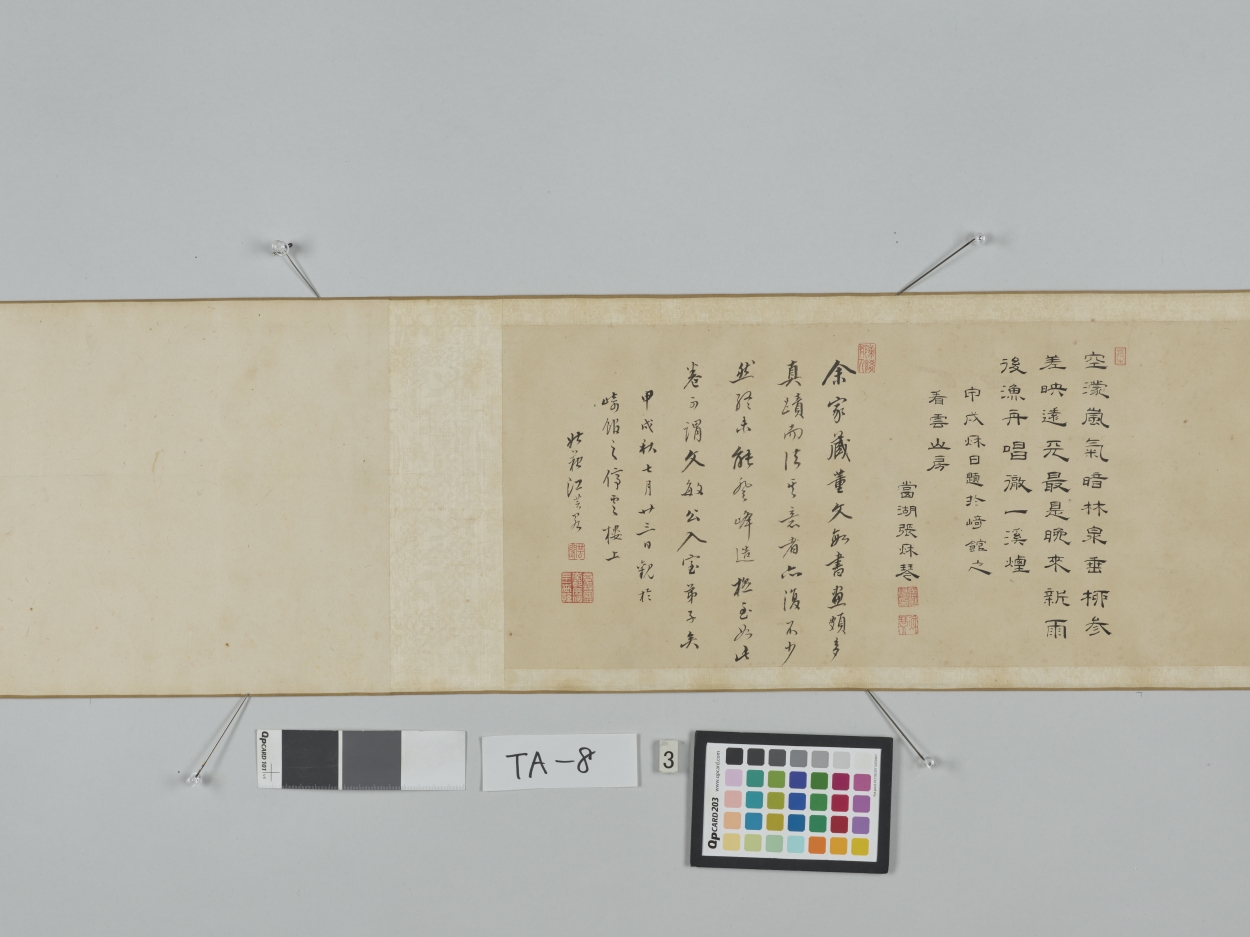 空濛嵐氣暗林泉垂柳參
差映遠天最是晚來新雨
後漁舟唱徹一溪煙
甲戌秋日題於崎館之
看雲山房
當湖張秋琴
余家藏董文敏書畫頗多
真蹟而法其意者亦復不少
然終未能登峰造極至如此
卷可謂文敏公入室弟子矣
甲戌秋七月廿三日觀於
崎館之停雲樓上
江芸閣
QPCARD 101
TA-8
3
QPCARD 203
www.qpcard.com